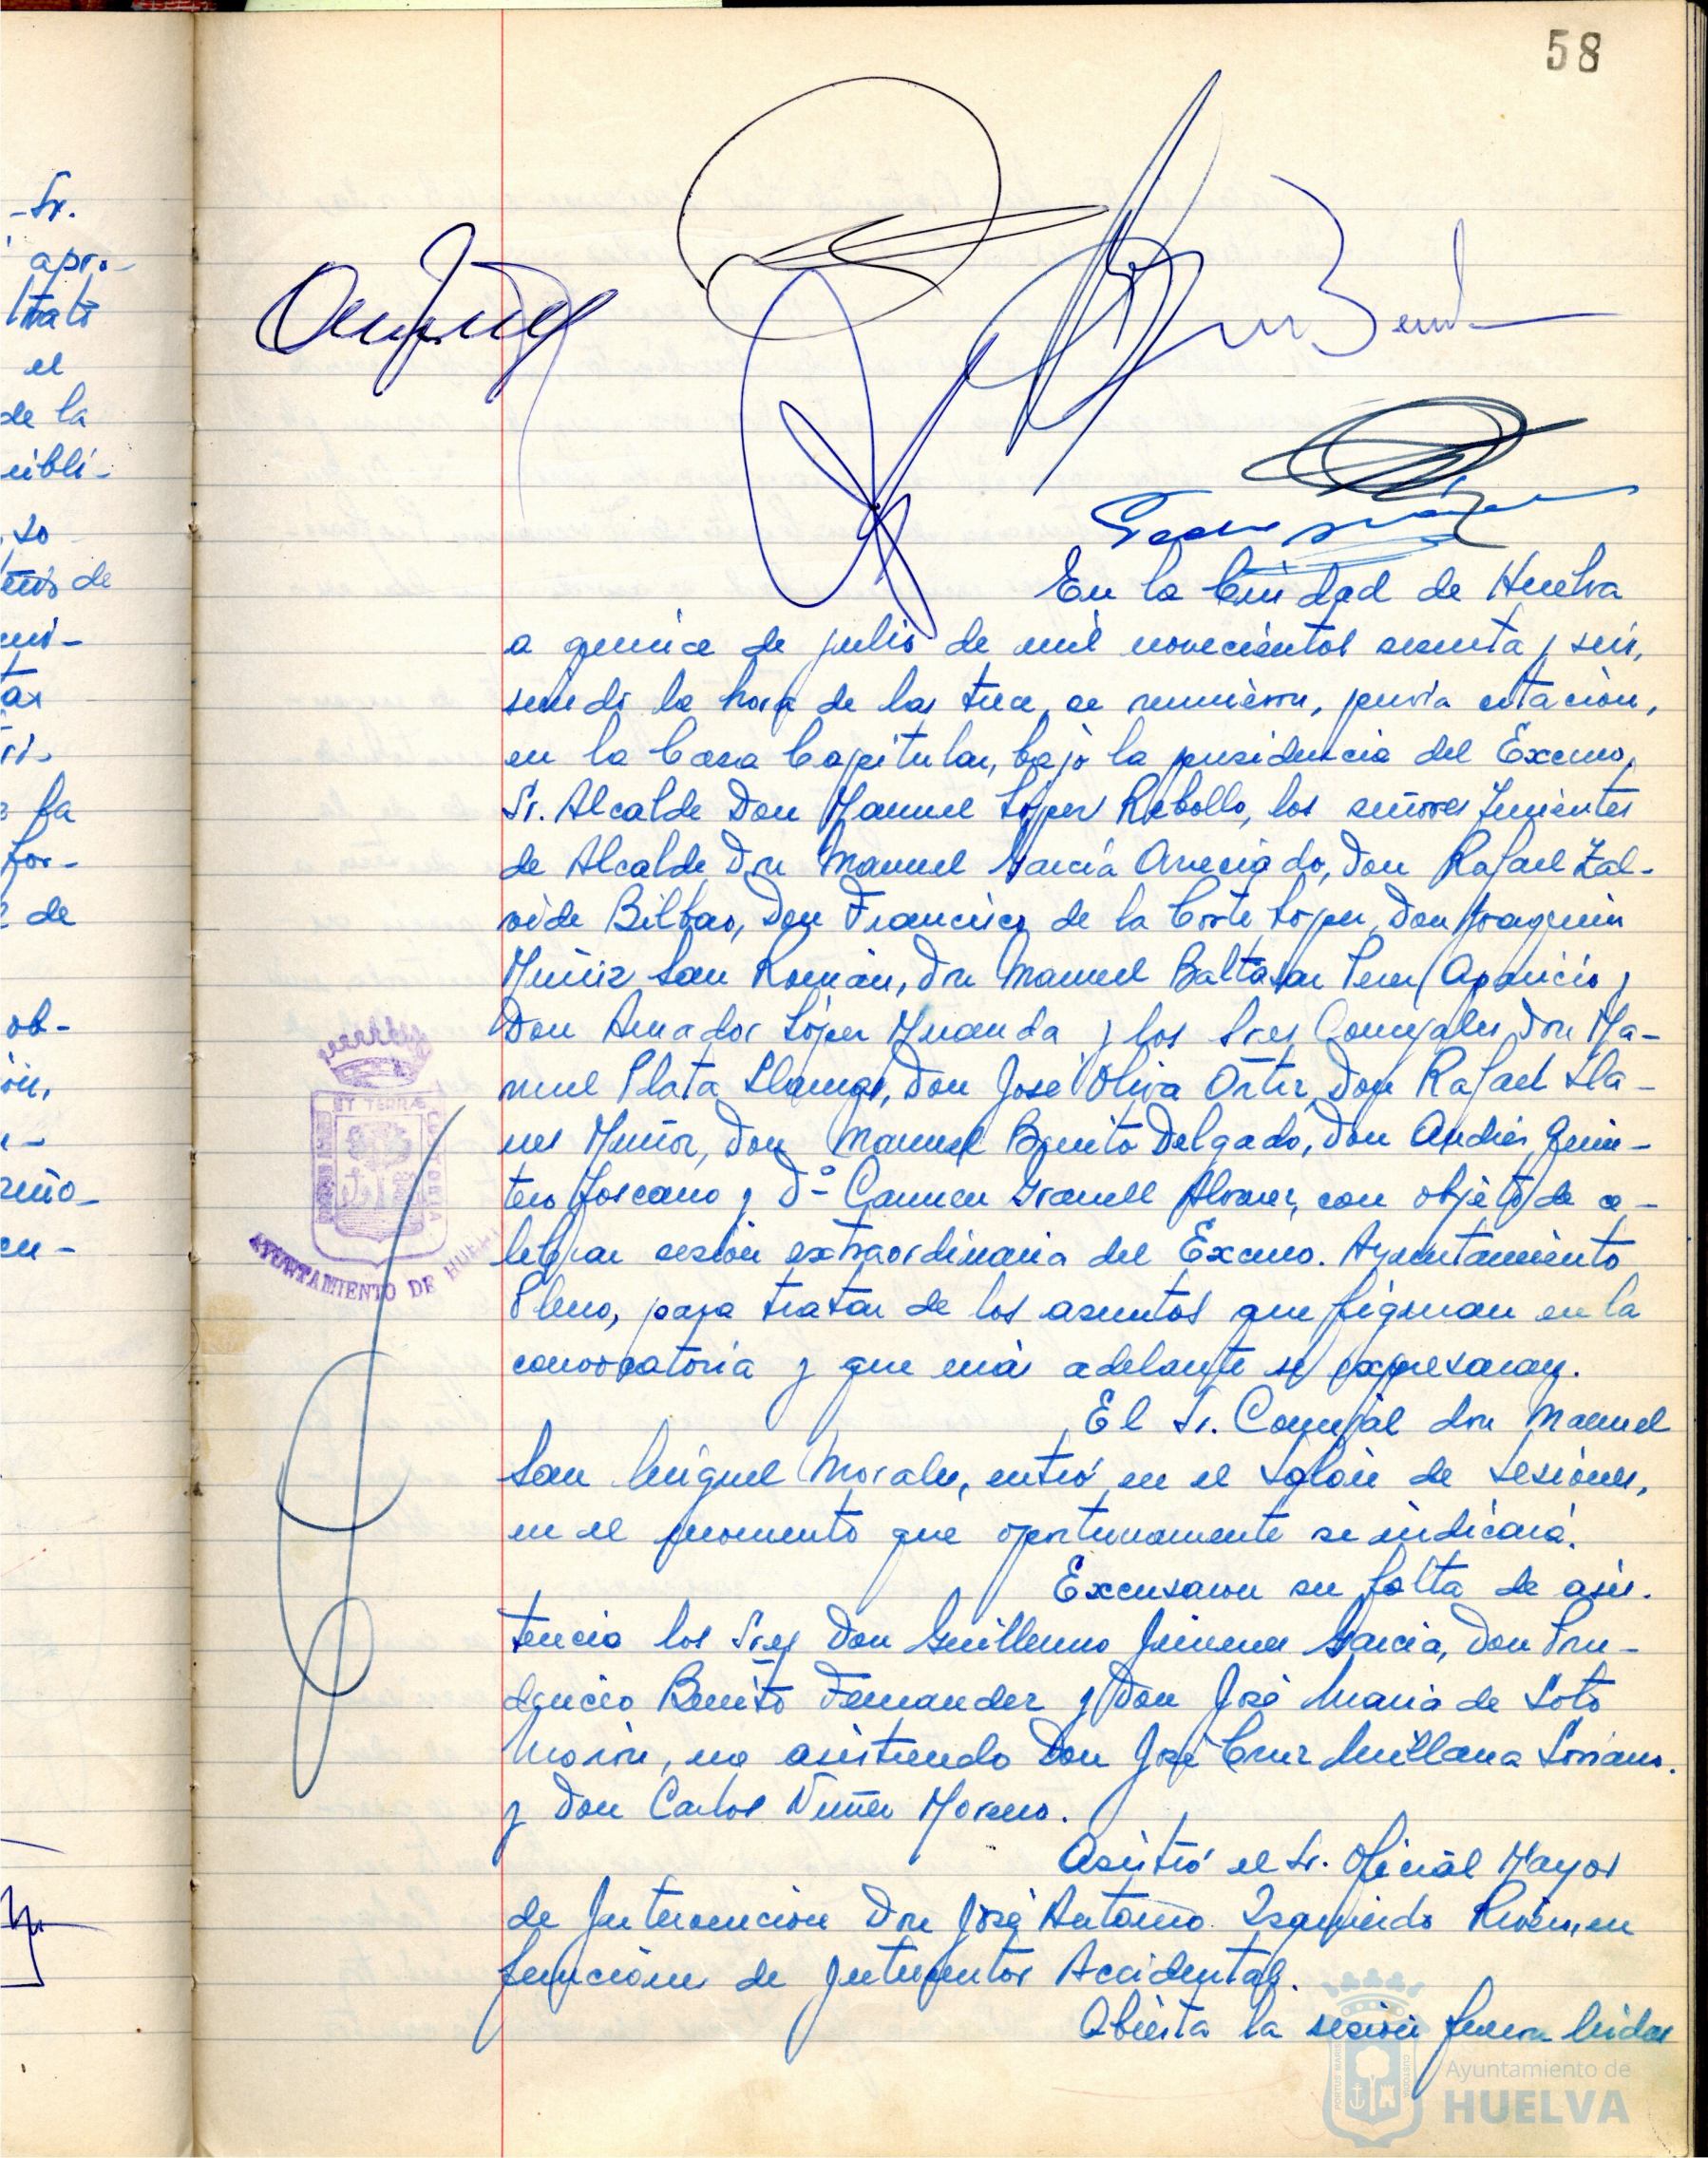 58
-Sr.
apro-
el
de la
ubli-
so
de
la
for-
de
ob-
ón,
En la Ciudad de Huelva
a quince de julio de mil novecientos sesenta y seis,
siendo la hora de las trece, se reunieron, previa citación,
en la Casa Capitular, bajo la presidencia del Excmo.
Sr. Alcalde Don Manuel López Rebollo, los señores Tenientes
de Alcalde Don Manuel García Arreciado, Don Rafael Zal-
vide Bilbao, Don Francisco de la Corte López, Don Joaquin
Muñiz San Román, Don Manuel Baltasar Perez Aparicio y
Don Amador López Miranda y los Sres Concejales Don Ma-
nuel Plata Llanes, Don José Oliva Ortiz, Don Rafael Lla-
nes Muñoz, Don Manuel Benito Delgado, Don Andrés Quin-
tero Toscano y Dª Carmen Granell Alvarez, con objeto de ce-
lebrar sesión extraordinaria del Excmo. Ayuntamiento
Pleno, para tratar de los asuntos que figuran en la
convocatoria y que más adelante se expresaran.
El Sr. Concejal don Manuel
San Miguel Morales, entró en el salón de sesiones,
en el momento que oportunamente se indicará.
Excusaron su falta de asis-
tencia los Sres Don Guillermo Jimenez Garcia, Don Pru-
dencio Benito Fernandez y Don José Maria de Soto
Morón, no asistiendo Don José Cruz Millana Soriano
y Don Carlos Nuñez Moreno.
Asistió el Sr. Oficial Mayor
de Intervencion Don José Antonio Izquierdo en
funciones de Interventor Accidental.
Abierta la sesión fueron leidas
AYUNTAMIENTO DE HUELVA
Ayuntamiento de
HUELVA